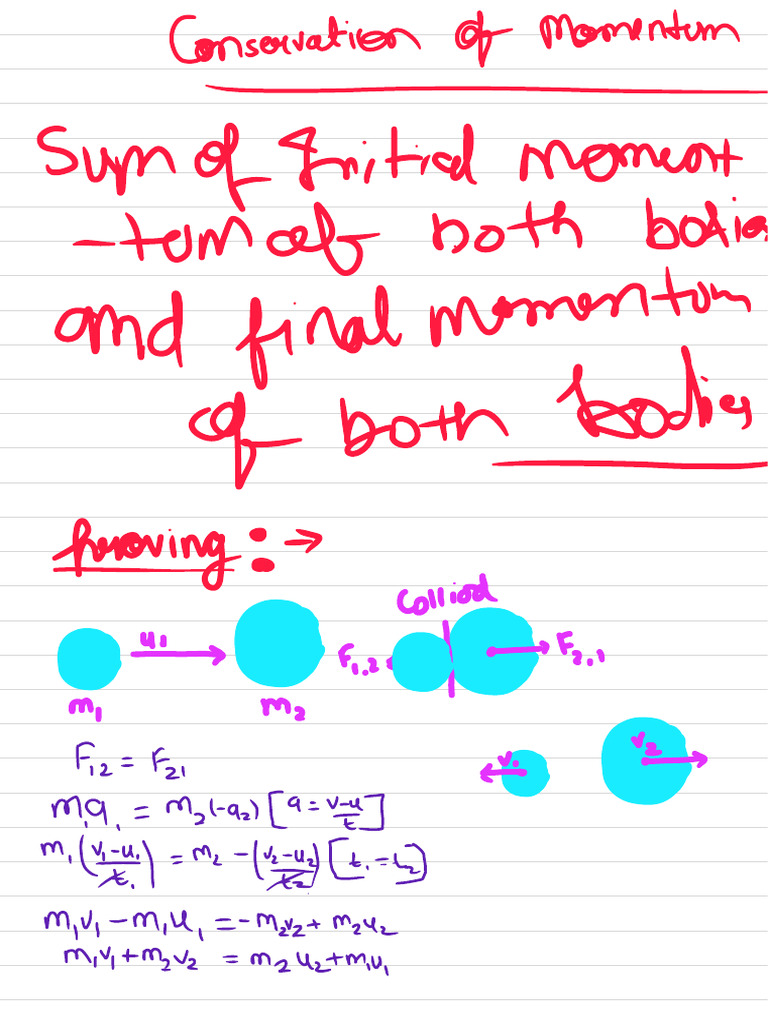 Conservation of Momentum
Sum of Initial moment
-tum of both bodies
and final momentum
of both bodies
Proving :→
Colliod
u₁
F₁.₂
F₂.₁
m₁
m₂
v₁
v₂
F₁₂ = F₂₁
m₁a₁ = m₂(-a₂) [a = v-u/t]
m₁(v₁-u₁/t₁) = m₂ -(v₂-u₂/t₂) [t₁=t₂]
m₁v₁ - m₁u₁ = -m₂v₂ + m₂u₂
m₁v₁ + m₂v₂ = m₂u₂ + m₁u₁